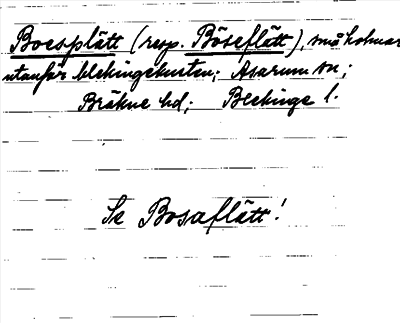 Boesplätt (resp. Böseflätt), små holmar
utanför blekingekusten; Asarum sn;
Bräkne hd; Blekinge l.
Se Bosaflätt!